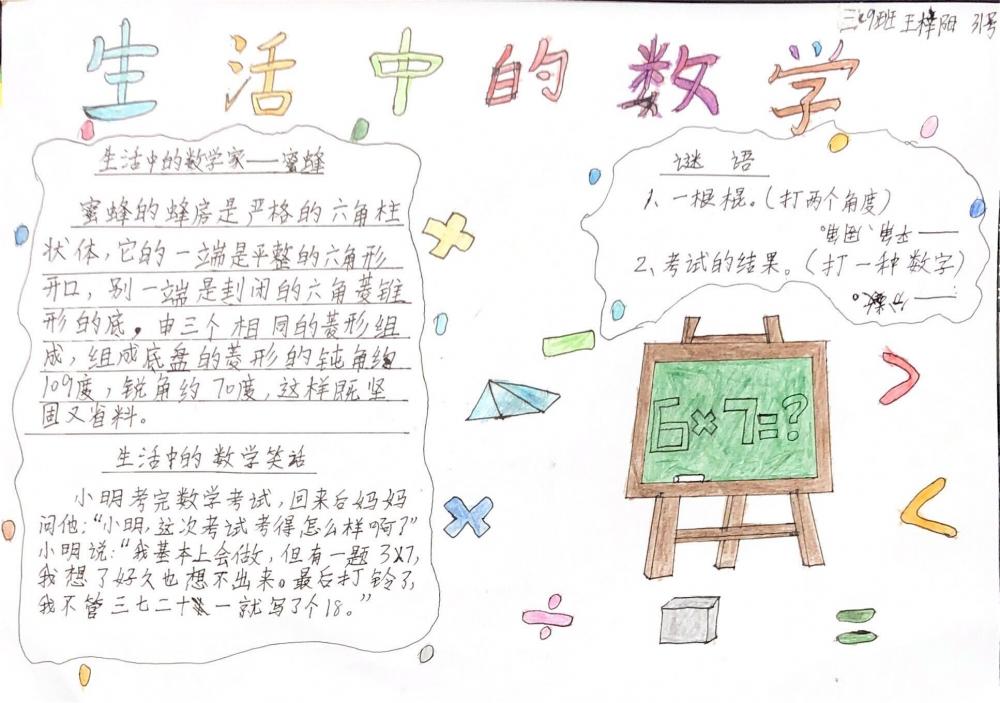 三(9)班 王梓阳 31号
生活中的数学
生活中的数学家——蜜蜂
蜜蜂的蜂房是严格的六角柱
状体，它的一端是平整的六角形
开口，别一端是封闭的六角菱锥
形的底。由三个相同的菱形组
成，组成底盘的菱形的钝角约
109度，锐角约70度，这样既坚
固又省料。
生活中的数学笑话
小明考完数学考试，回来后妈妈
问他：“小明，这次考试考得怎么样啊？”
小明说：“我基本上会做，但有一题3×7，
我想了好久也想不出来。最后打铃了，
我不管三七二十一就写了个18。”
谜语
1、一根棍。（打两个角度）
2、考试的结果。（打一种数字）
——分数。
6×7=?